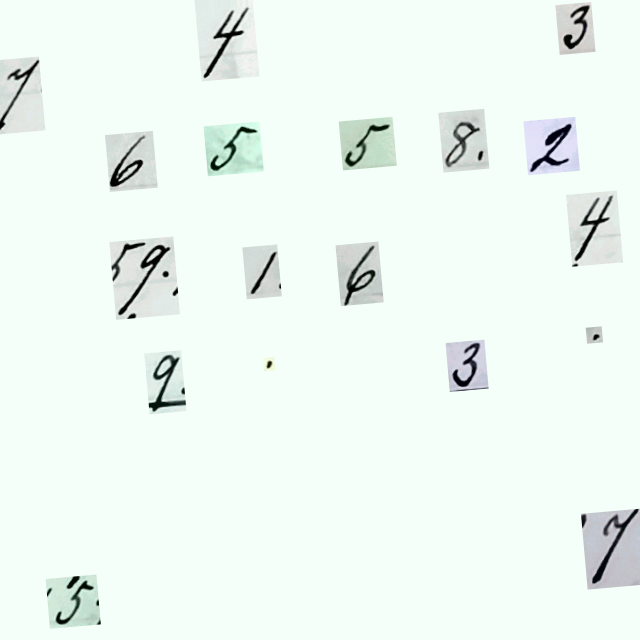 4 3
7
6 5 5 8. 2
4
59. 1. 6
.
9. . 3
7
5